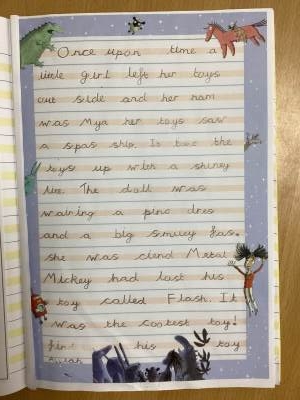 Once upon time a
little girl left her toys
out side and her nam
was Mya her toys saw
a spas ship. It the
toys up with a shiney
lite. The doll was
waring a pinc dres
and a big smiley fas.
she was clend Metal
Mickey had lost his
toy called Flash. It
was the coolest toy!
his toy